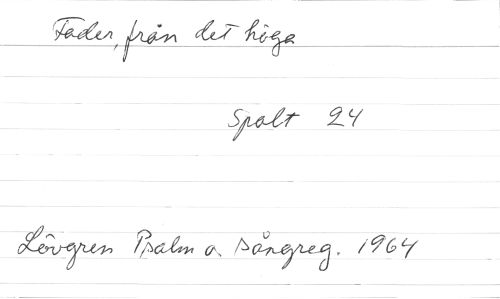 Fader, från det höga
Spalt 24
Lövgren Psalm o. sångreg. 1964